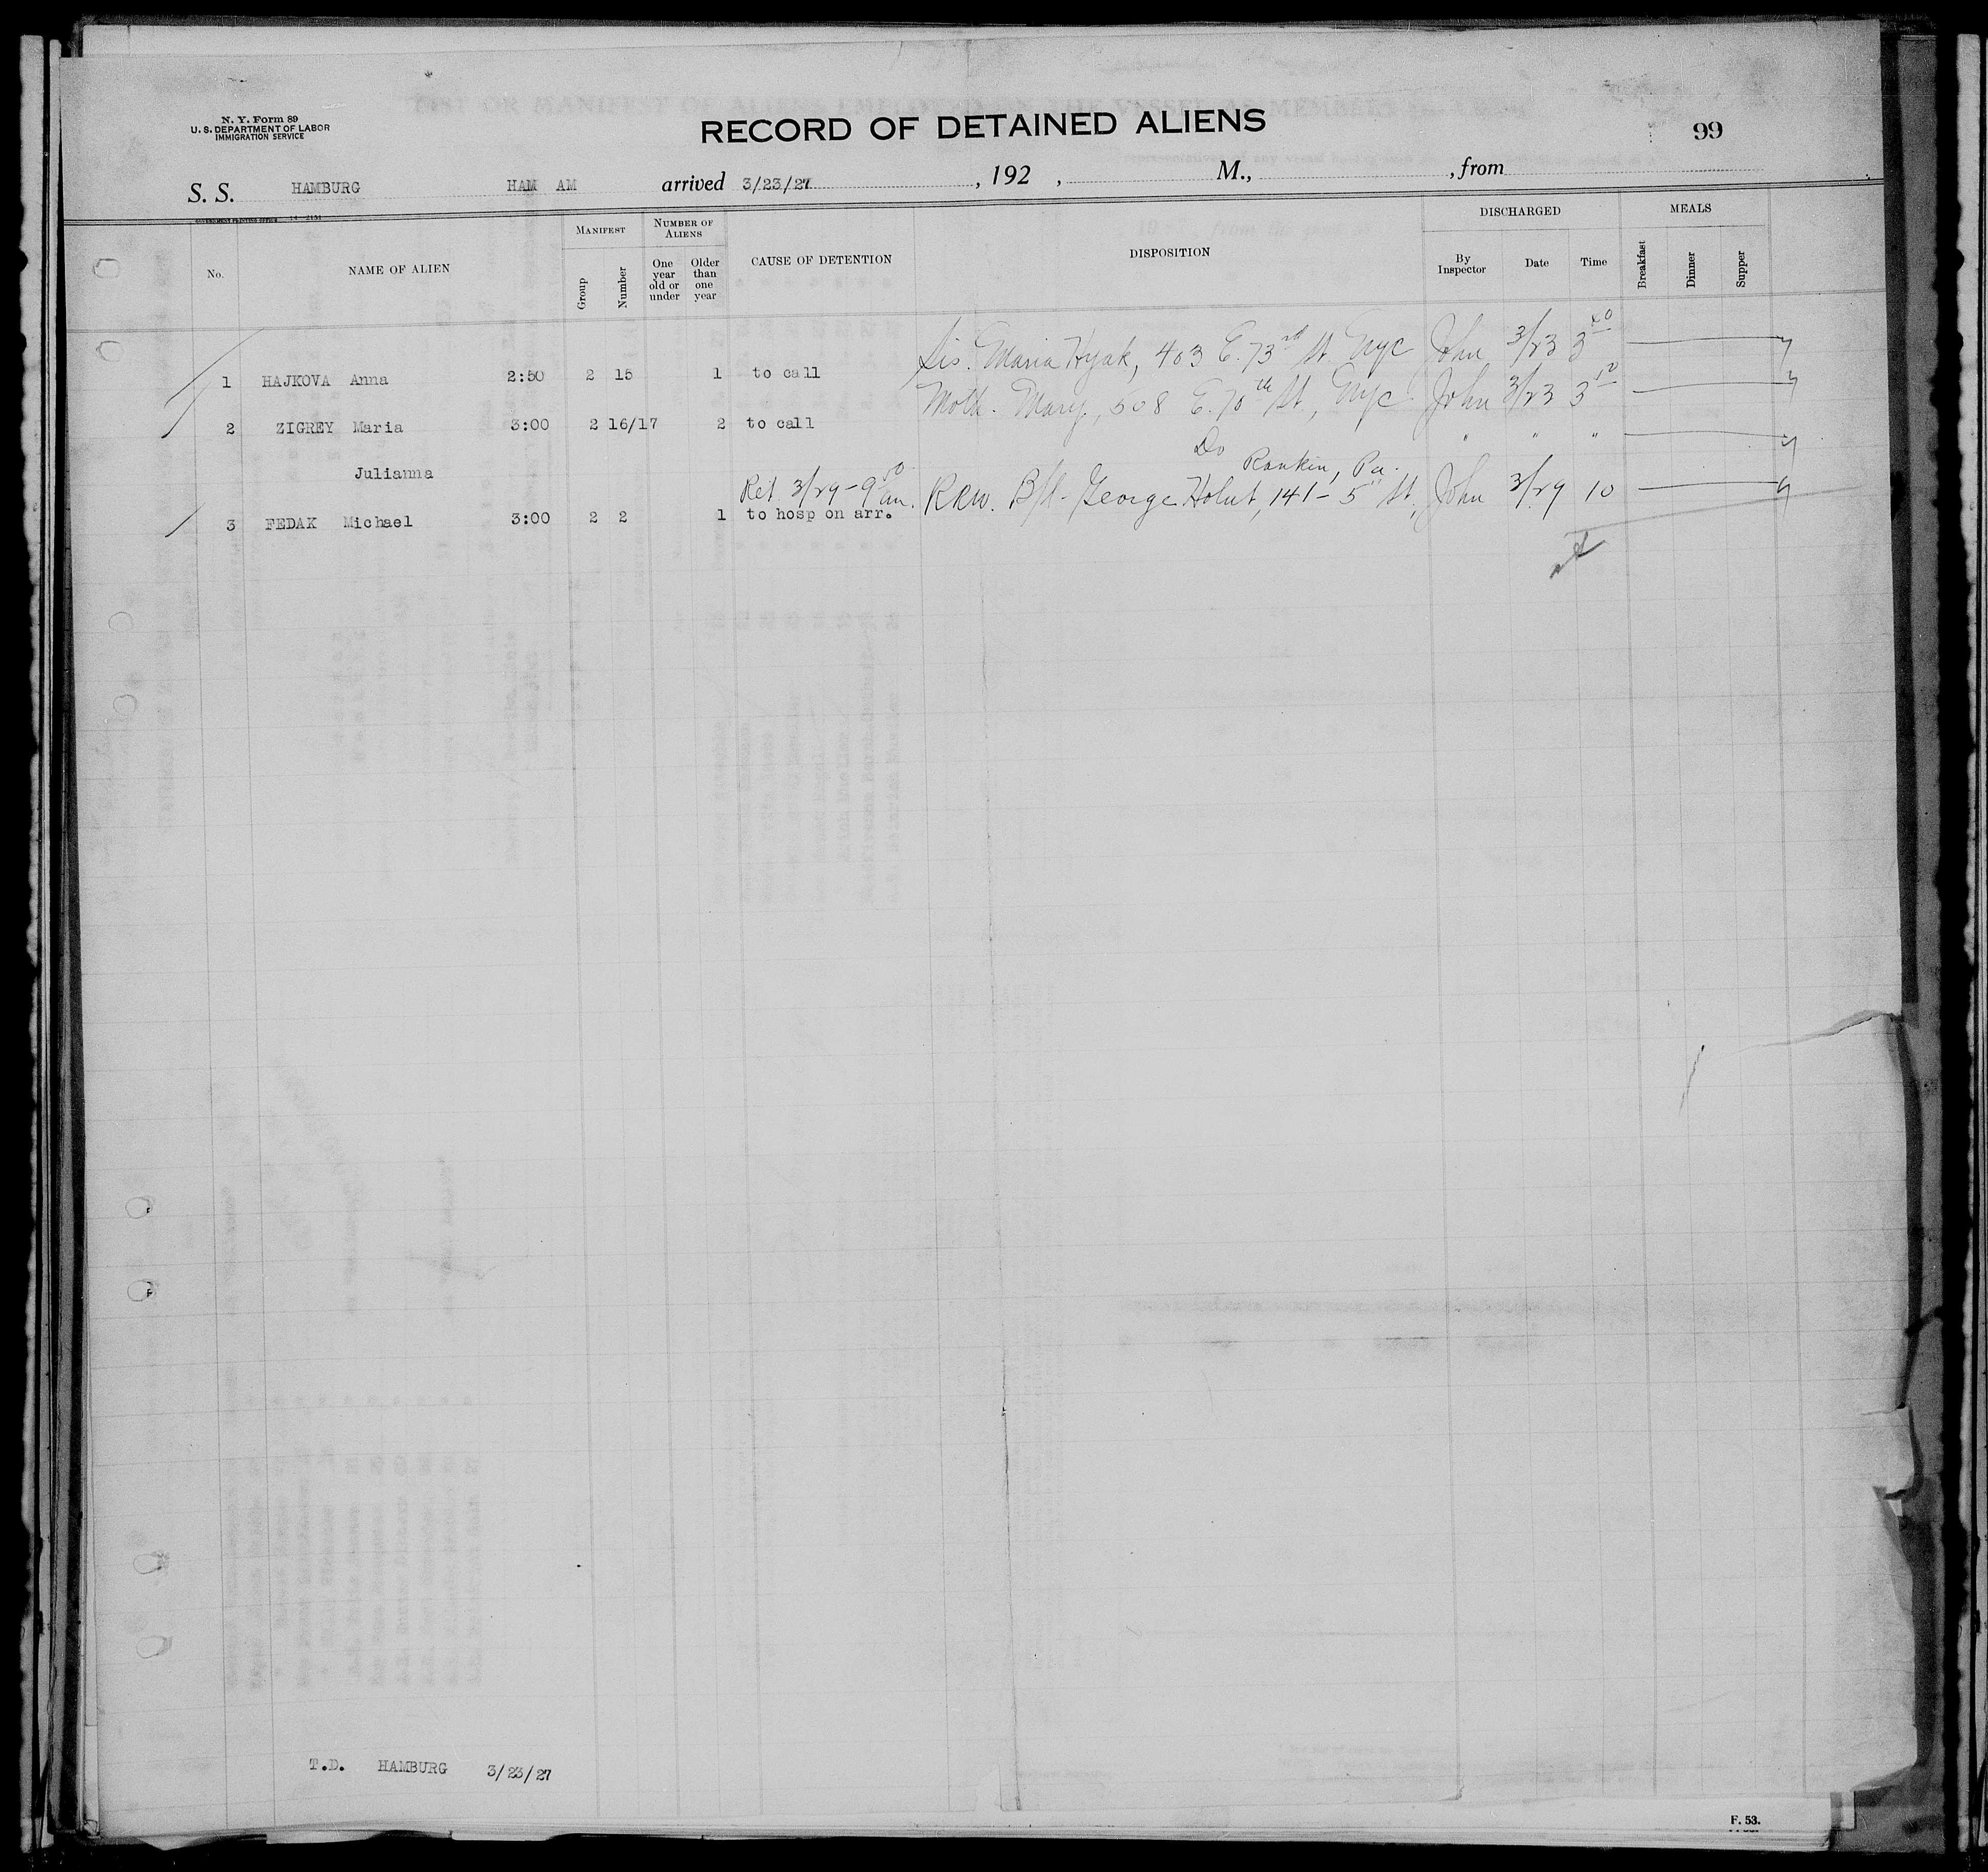 N. Y. Form 89
U. S. DEPARTMENT OF LABOR
IMMIGRATION SERVICE
RECORD OF DETAINED ALIENS
99
S. S. HAMBURG HAM AM arrived 3/23/27, 192 , M., , from
GOVERNMENT PRINTING OFFICE 14-2151
No. NAME OF ALIEN MANIFEST Group Number NUMBER OF ALIENS One year old or under Older than one year CAUSE OF DETENTION DISPOSITION DISCHARGED By Inspector Date Time MEALS Breakfast Dinner Supper
Sis. Maria Hyak, 403 E. 73rd St. Nyc John 3/23 3 40
1 HAJKOVA Anna 2:50 2 15 1 to call
Moth. Mary, 508 E. 70th St, Nyc John 3/23 3 10
2 ZIGREY Maria 3:00 2 16/17 2 to call
Do " " "
Julianna
Rankin, Pa.
Ret. 3/29 - 9 50 am. B/l - George Holut, 141 - 5" St, John 3/29 10
3 FEDAK Michael 3:00 2 2 1 to hosp on arr.
T.D. HAMBURG 3/23/27
F. 53.